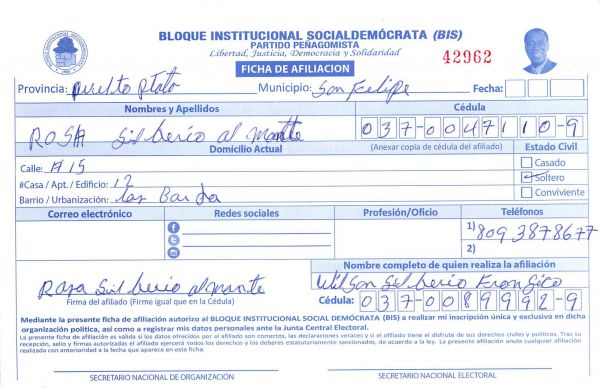 BLOQUE INSTITUCIONAL SOCIALDEMÓCRATA (BIS)
PARTIDO PEÑAGOMISTA
Libertad, Justicia, Democracia y Solidaridad
42962
FICHA DE AFILIACION
Provincia: puerto plata Municipio: San Felipe Fecha:
Nombres y Apellidos Cédula
ROSA Silberio almante 037-0047110-9
Domicilio Actual (Anexar copia de cédula del afiliado) Estado Civil
Calle: #15 Casado
#Casa / Apt. / Edificio: 12 Soltero
Barrio / Urbanización: los Conviviente
Correo electrónico Redes sociales Profesión/Oficio Teléfonos
1) 809 3878677
2)
Nombre completo de quien realiza la afiliación
Rosa Silberio almante Wilson Silberio
Firma del afiliado (Firme igual que en la Cédula) Cédula: 037-0089992-9
Mediante la presente ficha de afiliación autorizo al BLOQUE INSTITUCIONAL SOCIAL DEMÓCRATA (BIS) a realizar mi inscripción única y exclusiva en dicha
organización política, así como a registrar mis datos personales ante la Junta Central Electoral.
La presente ficha de afiliación es válida si los datos ofrecidos por el afiliado son correctos, las declaraciones veraces y si el afiliado tiene el disfrute de sus derechos civiles y políticos. Tras su
recepción, sello y firmas autorizadas el afiliado ejercerá todos los derechos y los deberes estatutariamente sancionados, de acuerdo a la ley. La presente afiliación anula cualquier afiliación
realizada con anterioridad a la fecha que aparece en esta ficha.
SECRETARIO NACIONAL DE ORGANIZACIÓN SECRETARIO NACIONAL ELECTORAL